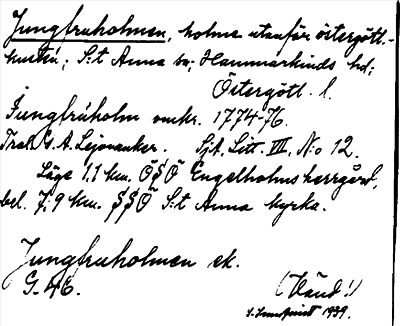 Jungfruholmen, holme utanför östergötl.-
kusten; S:t Anna sn; Hammarkinds hd;
Östergötl. l.
Jungfruholm omkr. 1774-76
Trakt G. A. Lejonanker. Sjk. Litt. III, N:o 12.
Läge 1.1 km. ÖSÖ Engelholms herrgård,
bel. 7,9 km. SSÖ S:t Anna kyrka.
Jungfruholmen ek.
G. 46.
(Vänd!)
1939.